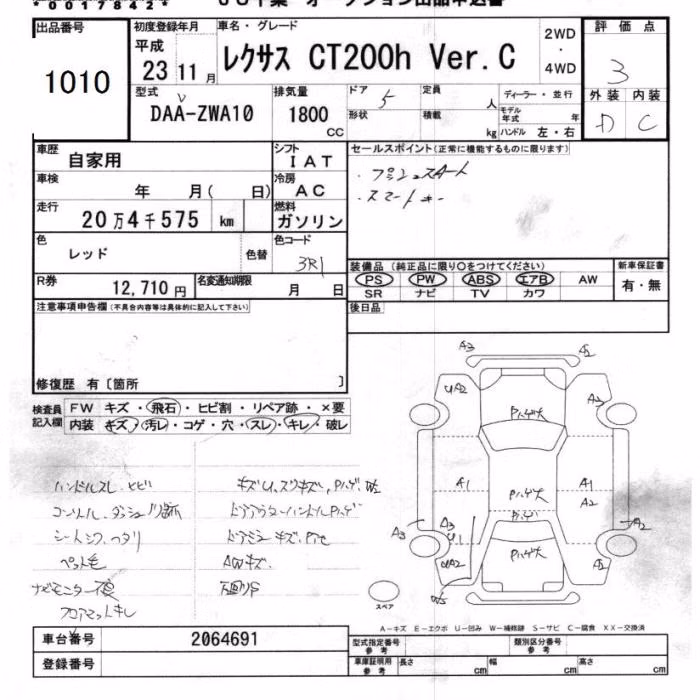 *00178442*
出品番号
1010
初度登録年月
平成
23 11 月
車名・グレード
レクサス CT200h Ver.C
2WD
・
4WD
評価点
3
外装 内装
D C
型式
DAA-ZWA10
排気量
1800
CC
ドア
5
形状
定員
人
積載
kg
ディーラー・並行
モデル
年式 年
ハンドル 左・右
車歴
自家用
シフト
IAT
車検
年 月( 日)
冷房
AC
走行
20万4千575 km
燃料
ガソリン
色
レッド
色替
色コード
3R1
R券
12,710 円
名変通知期限
月 日
セールスポイント(正常に機能するものに限ります)
・プッシュスタート
・スマートキー
装備品 (純正品に限り○をつけてください)
PS PW ABS エアB AW
SR ナビ TV カワ
新車保証書
有・無
後日品
注意事項申告欄(不具合内容等は具体的に記入して下さい)
修復歴 有〔箇所 〕
検査員
記入欄
FW キズ・飛石・ヒビ割・リペア跡・×要
内装 キズ・汚レ・コゲ・穴・スレ・キレ・破レ
ハンドルスレ、ヒビ
シートシワ、ヘタリ
ペット毛
ナビモニター不良
フロアマットキレ
AWキズ
A3
A2
UA2
A2
Pハゲ大
A1
Pハゲ大
A1
A2
A3
A3
U1
Pハゲ大
A2
A2
スペア
A-キズ E-エクボ U-凹み W-補修跡 S-サビ C-腐食 XX-交換済
車台番号
2064691
登録番号
型式指定番号
参考
類別区分番号
参考
車庫証明用
参考
長さ cm
幅 cm
高さ cm